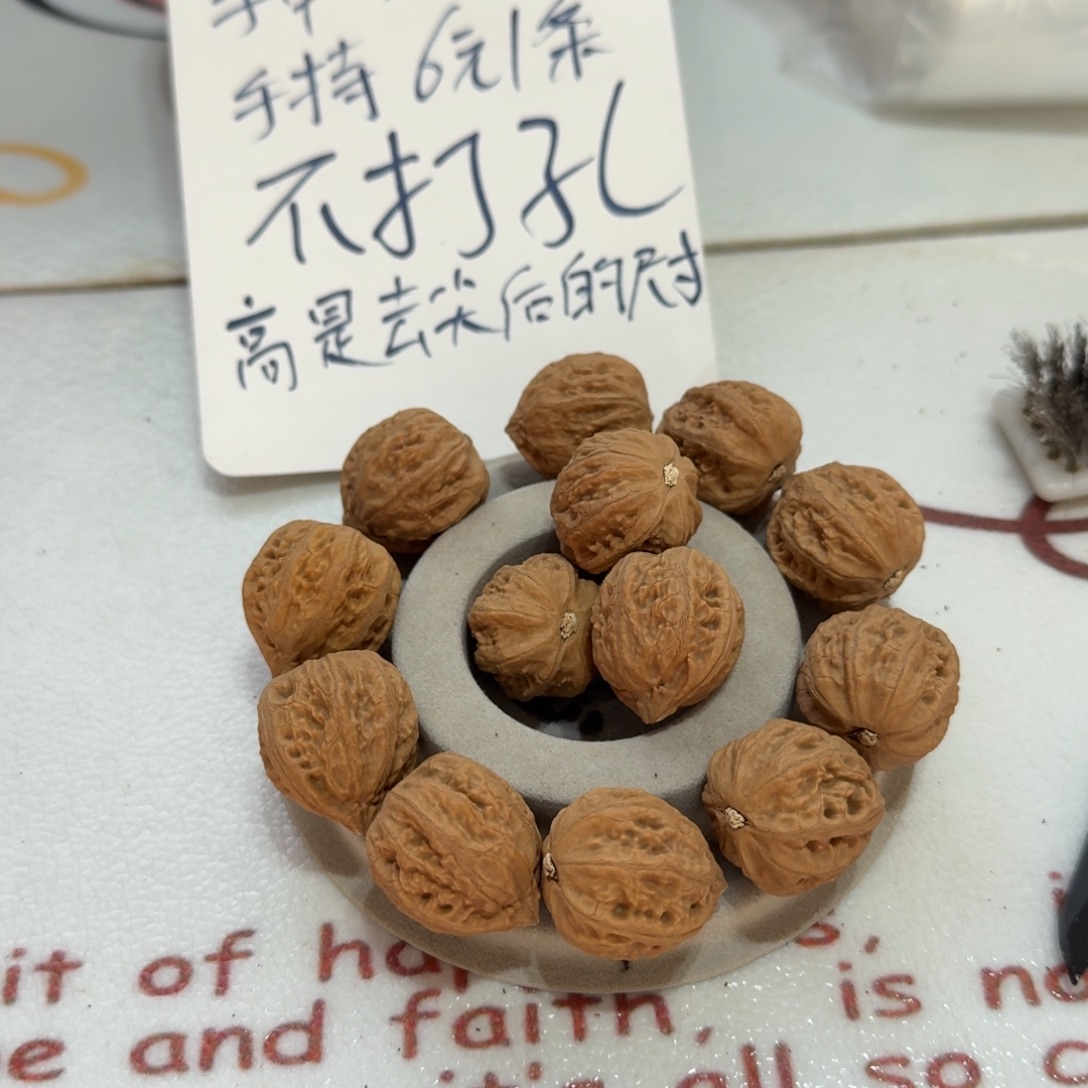 手持 6元1条
不打孔
高是去尖后的尺寸
it of
is no
and faith,
all so